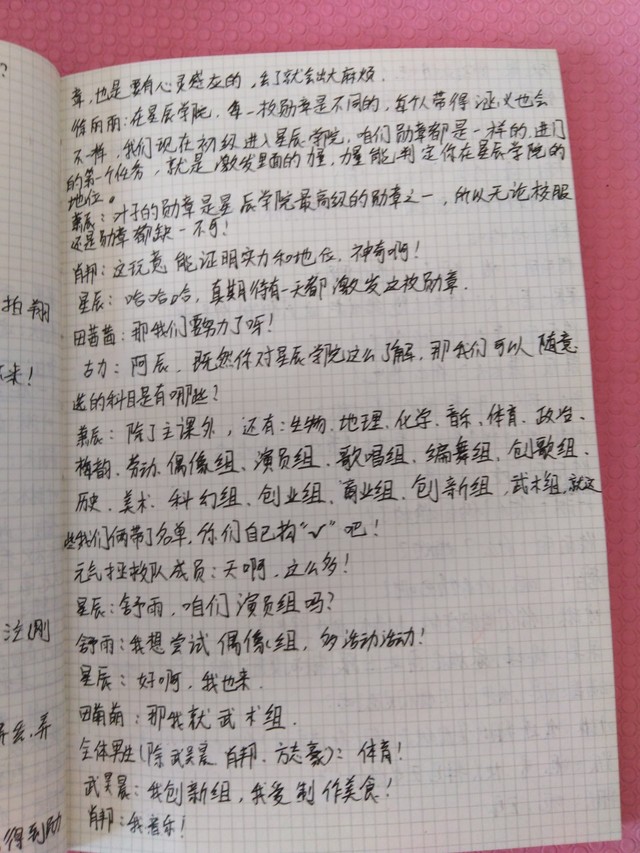 章，也是要有心灵感应的，丢了就会出大麻烦．
徐丽丽：在星辰学院，每一枚勋章是不同的，每个人带得证义也会
不一样，我们现在初级进入星辰学院，咱们勋章都是一样的，进门
的第一个任务，就是激发里面的力量，力量能判定你在星辰学院的
地位。
萧辰：叶子的勋章是星辰学院最高级的勋章之一，所以无论校服
还是勋章都缺一不可！
肖邦：这玩意能证明实力和地位，神奇啊！
星辰：哈哈哈，真期待有一天都激发这枚勋章．
田茜茜：那我们要努力了呀！
古力：阿辰，既然你对星辰学院这么了解，那我们可以随意
选的科目是有哪些？
萧辰：除了主课外，还有：生物、地理、化学、音乐、体育、政治、
梅韵、劳动、偶像组、演员组、歌唱组、编舞组、创歌组、
历史、美术、科幻组、创业组、商业组、创新组，武术组，就这
些我们俩带了名单，你们自己构“√”吧！
元气拯救队成员：天啊，这么多！
星辰：舒雨，咱们演员组吗？
舒雨：我想尝试偶像组，多活动活动！
星辰：好啊，我也来．
田萌萌：那我就武术组．
全体男生(除武昊晨、肖邦、方志豪)：体育！
武昊晨：我创新组，我爱制作美食！
肖邦：我音乐！
拍翔
来！
弄
得到勋